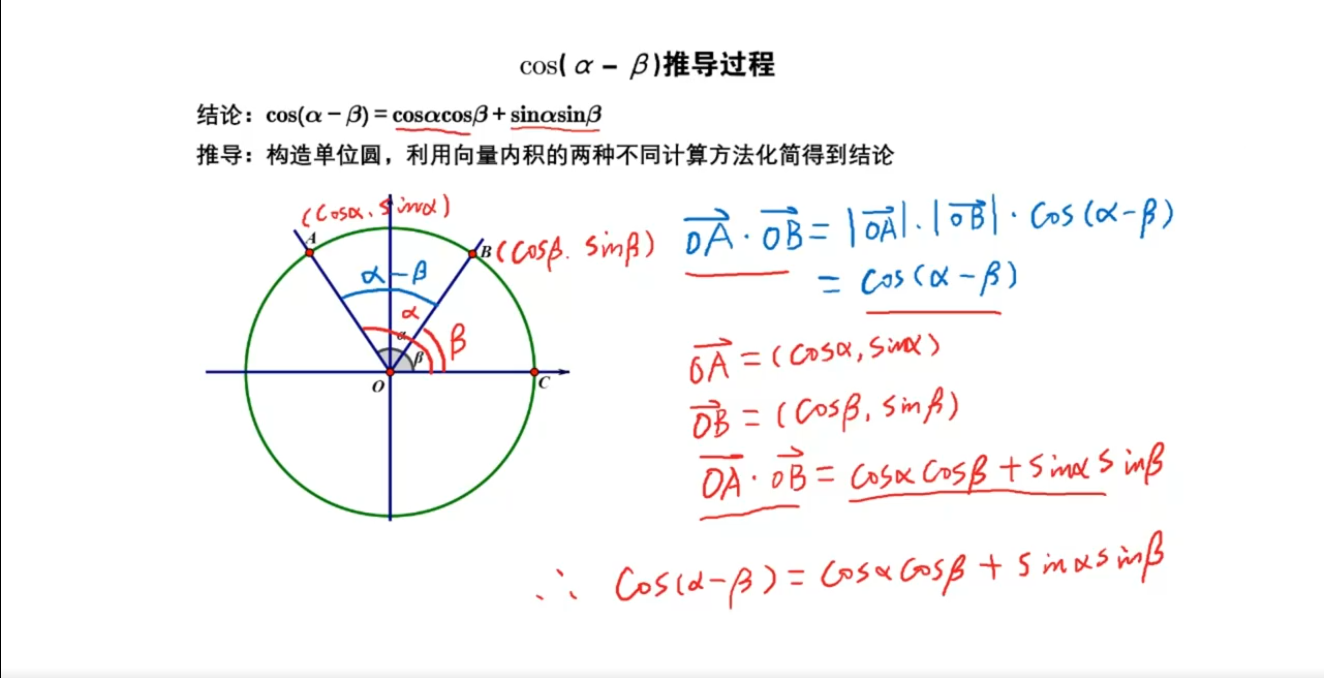 cos(α − β)推导过程
结论：cos(α − β) = cosαcosβ + sinαsinβ
推导：构造单位圆，利用向量内积的两种不同计算方法化简得到结论
(cosα, sinα)
A
B (cosβ. sinβ)
α−β
α
α
β
β
O
C
OA · OB = |OA| · |OB| · cos(α−β)
= cos(α−β)
OA = (cosα, sinα)
OB = (cosβ, sinβ)
OA · OB = cosα cosβ + sinα sinβ
∴ cos(α−β) = cosα cosβ + sinα sinβ